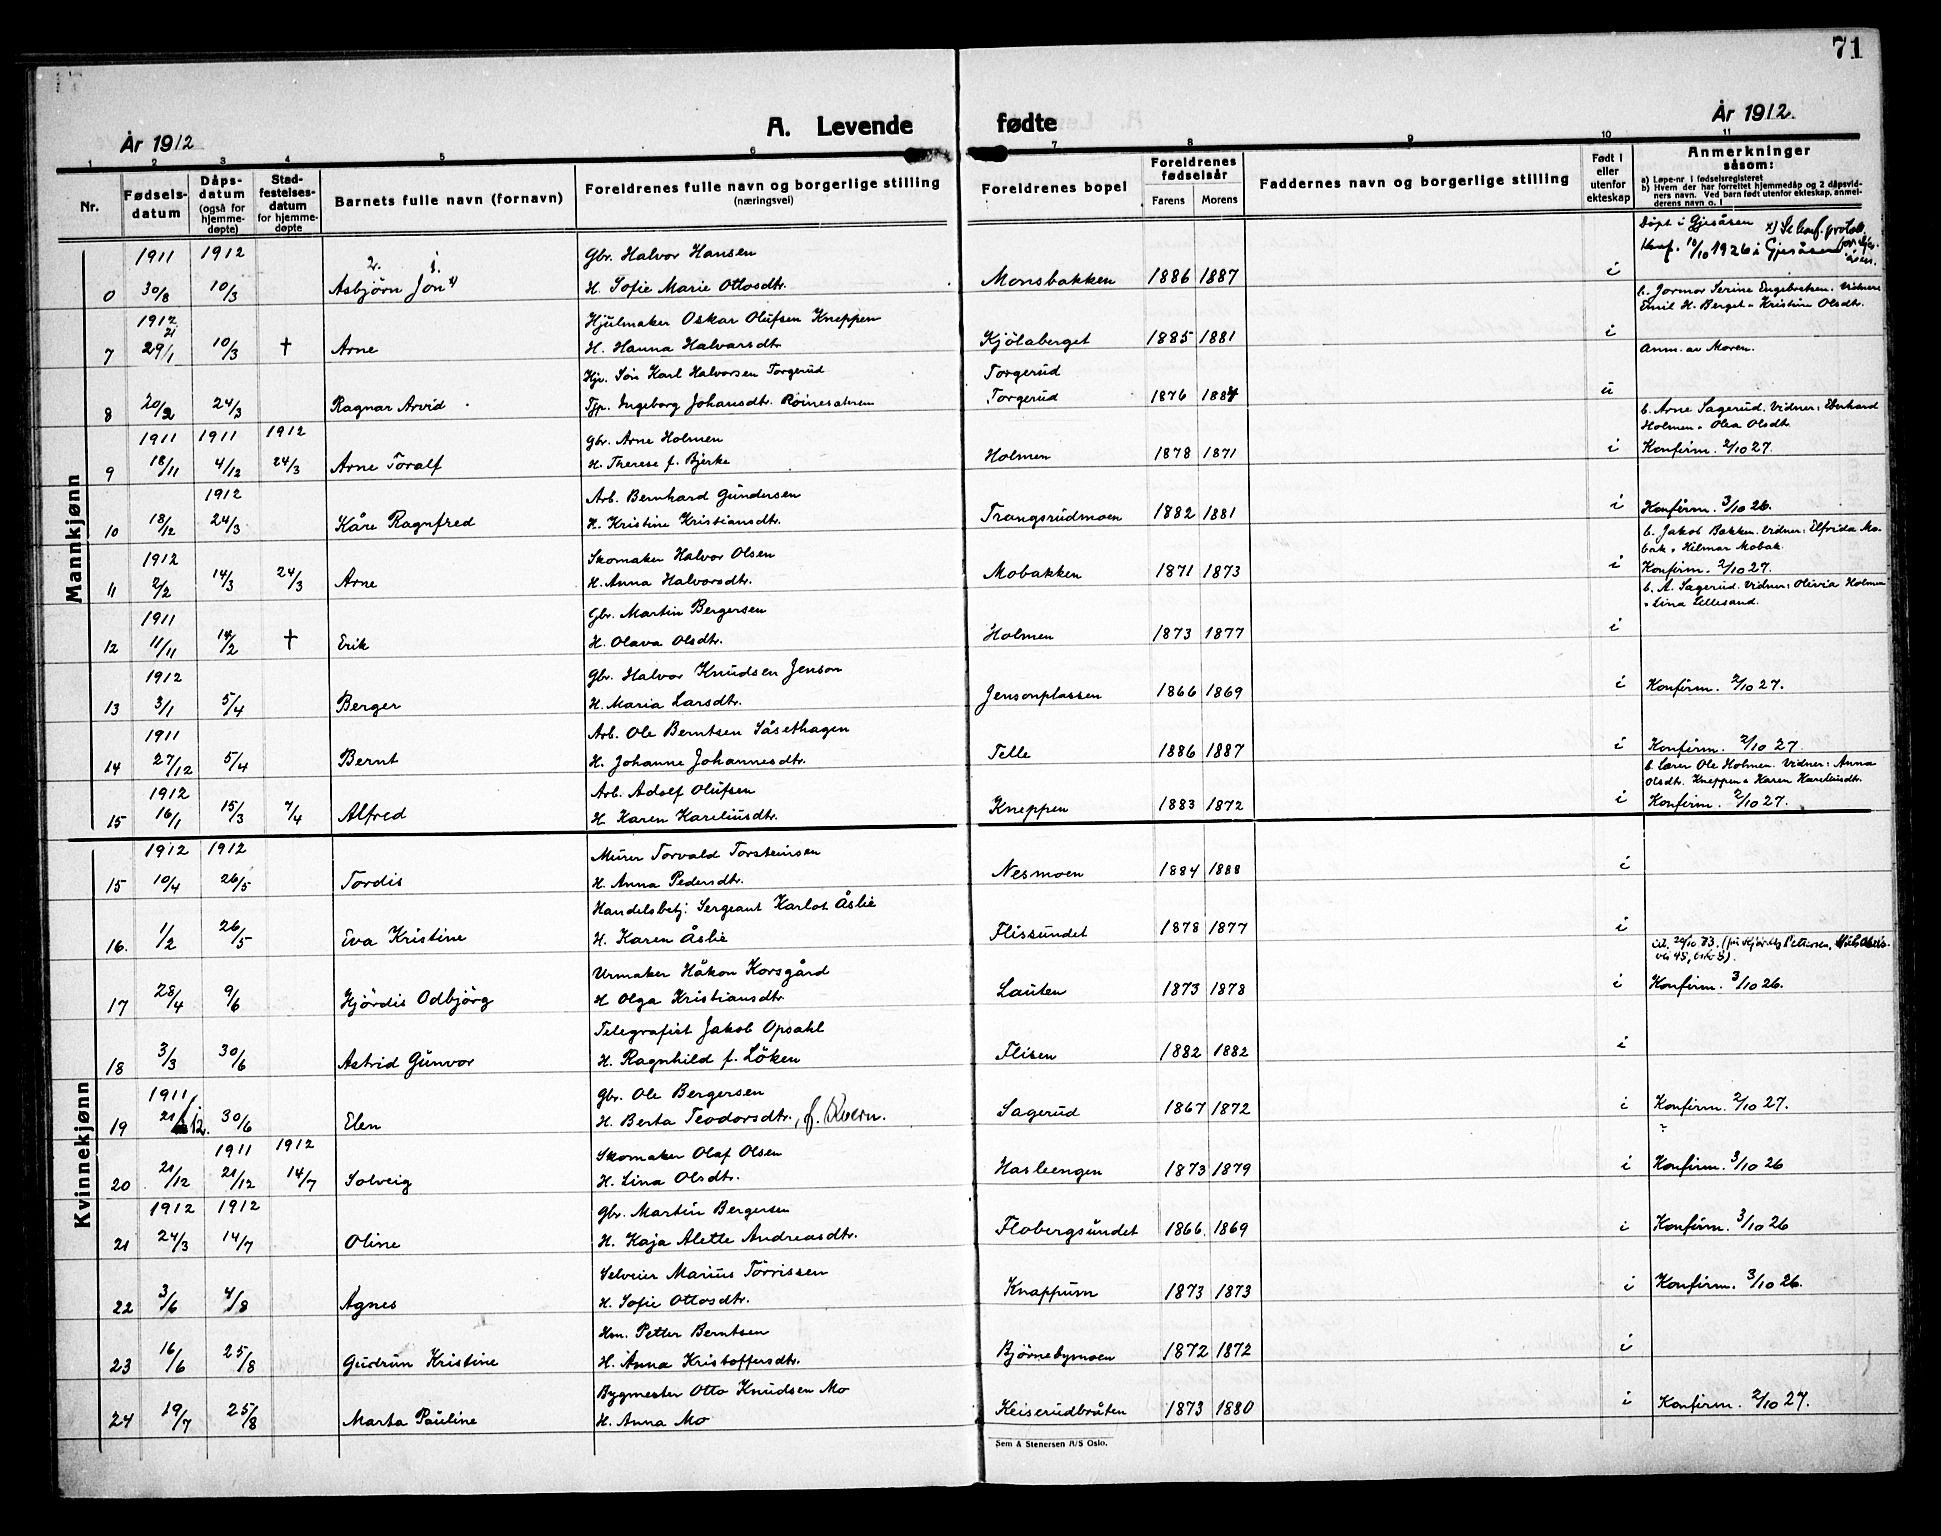 71
A. Levende fødte
År 1912
År 1912.
1 2 3 4 5 6 7 8 9 10 11
Nr.
Fødsels-
datum
Dåps-
datum
(også for
hjemme-
døpte)
Stad-
festelses-
datum
for hjemme-
døpte
Barnets fulle navn (fornavn)
Foreldrenes fulle navn og borgerlige stilling
(næringsvei)
Foreldrenes bopel
Foreldrenes
fødselsår
Farens Morens
Faddernes navn og borgerlige stilling
Født i
eller
utenfor
ekteskap
Anmerkninger
såsom:
a) Løpe-nr i fødselsregisteret
b) Hvem der har forrettet hjemmedåp og 2 dåpsvid-
ners navn. Ved barn født utenfor ekteskap, anmel-
derens navn o. l
Mannkjønn
1911 1912 2. 1. Gbr. Halvor Hansen Døpt i Gjesåsen x) Se konf. protok.
0 30/8 10/3 Asbjørn Jon H. Sofie Marie Ottosdtr. Monsbakken 1886 1887 i Konf. 10/10 1926 i Gjesåsen
1912 Hjulmaker Oskar Olufsen Kneppen b. Jormor Serine Engebretsen. Vidner:
Emil H. Berget - Kristine Olsdtr.
7 29/1 10/3 † Arne H. Hanna Halvorsdtr. Kjølaberget 1885 1881 i
Hjv. Søn Karl Halvorsen Torgerud Torgerud Anm. av Moren.
8 20/2 24/3 Ragnar Arvid Tjp. Ingeborg Johansdtr. Torgerud 1876 1884 u
1911 1911 1912 Gbr. Arne Holmen b. Arne Sagerud. Vidner: Eberhard
Holmen - Olea Olsdt.
9 18/11 4/12 24/3 Arne Toralf H. Therese f. Bjerke Holmen 1878 1871 i Konfirm. 2/10 27.
1912 Arb. Bernhard Gundersen
10 18/12 24/3 Kåre Ragnfred H. Kristine Kristiansdtr. Trangsrudmoen 1882 1881 i Konfirm. 3/10 26.
1912 Skomaker Halvor Olsen b. Jakob Bakken. Vidner: Elfrida Mo-
bak - Hilmar Mobak.
11 2/2 14/3 24/3 Arne H. Anna Halvorsdtr. Mobakken 1871 1873 i Konfirm. 2/10 27.
1911 Gbr. Martin Bergersen b. A. Sagerud. Vidner: Olivia Holmen
- Lina Lillesand.
12 11/11 14/2 † Erik H. Olava Olsdtr. Holmen 1873 1877 i
1912 Gbr. Halvor Knudsen Jenson
13 3/1 5/4 Berger H. Maria Larsdtr. Jensonplassen 1866 1869 i Konfirm. 2/10 27.
1911 Arb. Ole Berntsen Såsethagen
14 27/12 5/4 Bernt H. Johanne Johannesdtr. Telle 1886 1887 i Konfirm. 2/10 27.
1912 Arb. Adolf Olufsen b. Lærer Ole Holmen. Vidner: Anna
Olsdtr. Kneppen - Karen Kareliusdtr.
15 16/1 15/3 7/4 Alfred H. Karen Kareliusdtr. Kneppen 1883 1872 i Konfirm. 2/10 27.
Kvinnekjønn
1912 1912 Murer Torvald Torsteinsen
15 10/4 26/5 Tordis H. Anna Pedersdtr. Nesmoen 1884 1888 i
Handelsbetj. Sergeant Karlot Åslie
16. 1/2 26/5 Eva Kristine H. Karen Åslie Flissundet 1878 1877 i
Urmaker Håkon Korsgård
17 28/4 9/6 Hjördis Odbjörg H. Olga Kristiansdtr. Lauten 1873 1878 i Konfirm. 3/10 26.
Telegrafist Jakob Opsahl
18 3/3 30/6 Astrid Gunvor H. Ragnhild f. Löken Flisen 1882 1882 i
1911 Gbr. Ole Bergersen
19 21/12. 30/6 Elen H. Berta Teodorsdtr., f. Kvern. Sagerud 1867 1872 i Konfirm. 2/10 27.
1911 1912 Skomaker Olaf Olsen ?
20 21/12 21/12 14/7 Solveig H. Lina Olsdtr. Hasleengen 1873 1879 i Konfirm. 3/10 26
1912 1912 Gbr. Martin Bergersen
21 24/3 14/7 Oline H. Kaja Alette Andreasdtr. Flobergsundet 1866 1869 i Konfirm. 3/10 26
Selveier Marius Törrissen
22 3/6 4/8 Agnes H. Sofie Ottosdtr. Knappum 1873 1873 i Konfirm. 3/10 26.
Hm. Petter Berntsen
23 16/6 25/8 Gudrun Kristine H. Anna Kristoffersdtr. Bjørnebymoen 1872 1872 i
Bygmester Otto Knudsen Mo
24 19/7 25/8 Marta Pauline H. Anna Mo Keiserudbråten 1873 1880 i Konfirm. 2/10 27.
Sem & Stenersen A/S Oslo.